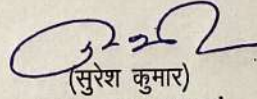 (सुरेश कुमार)